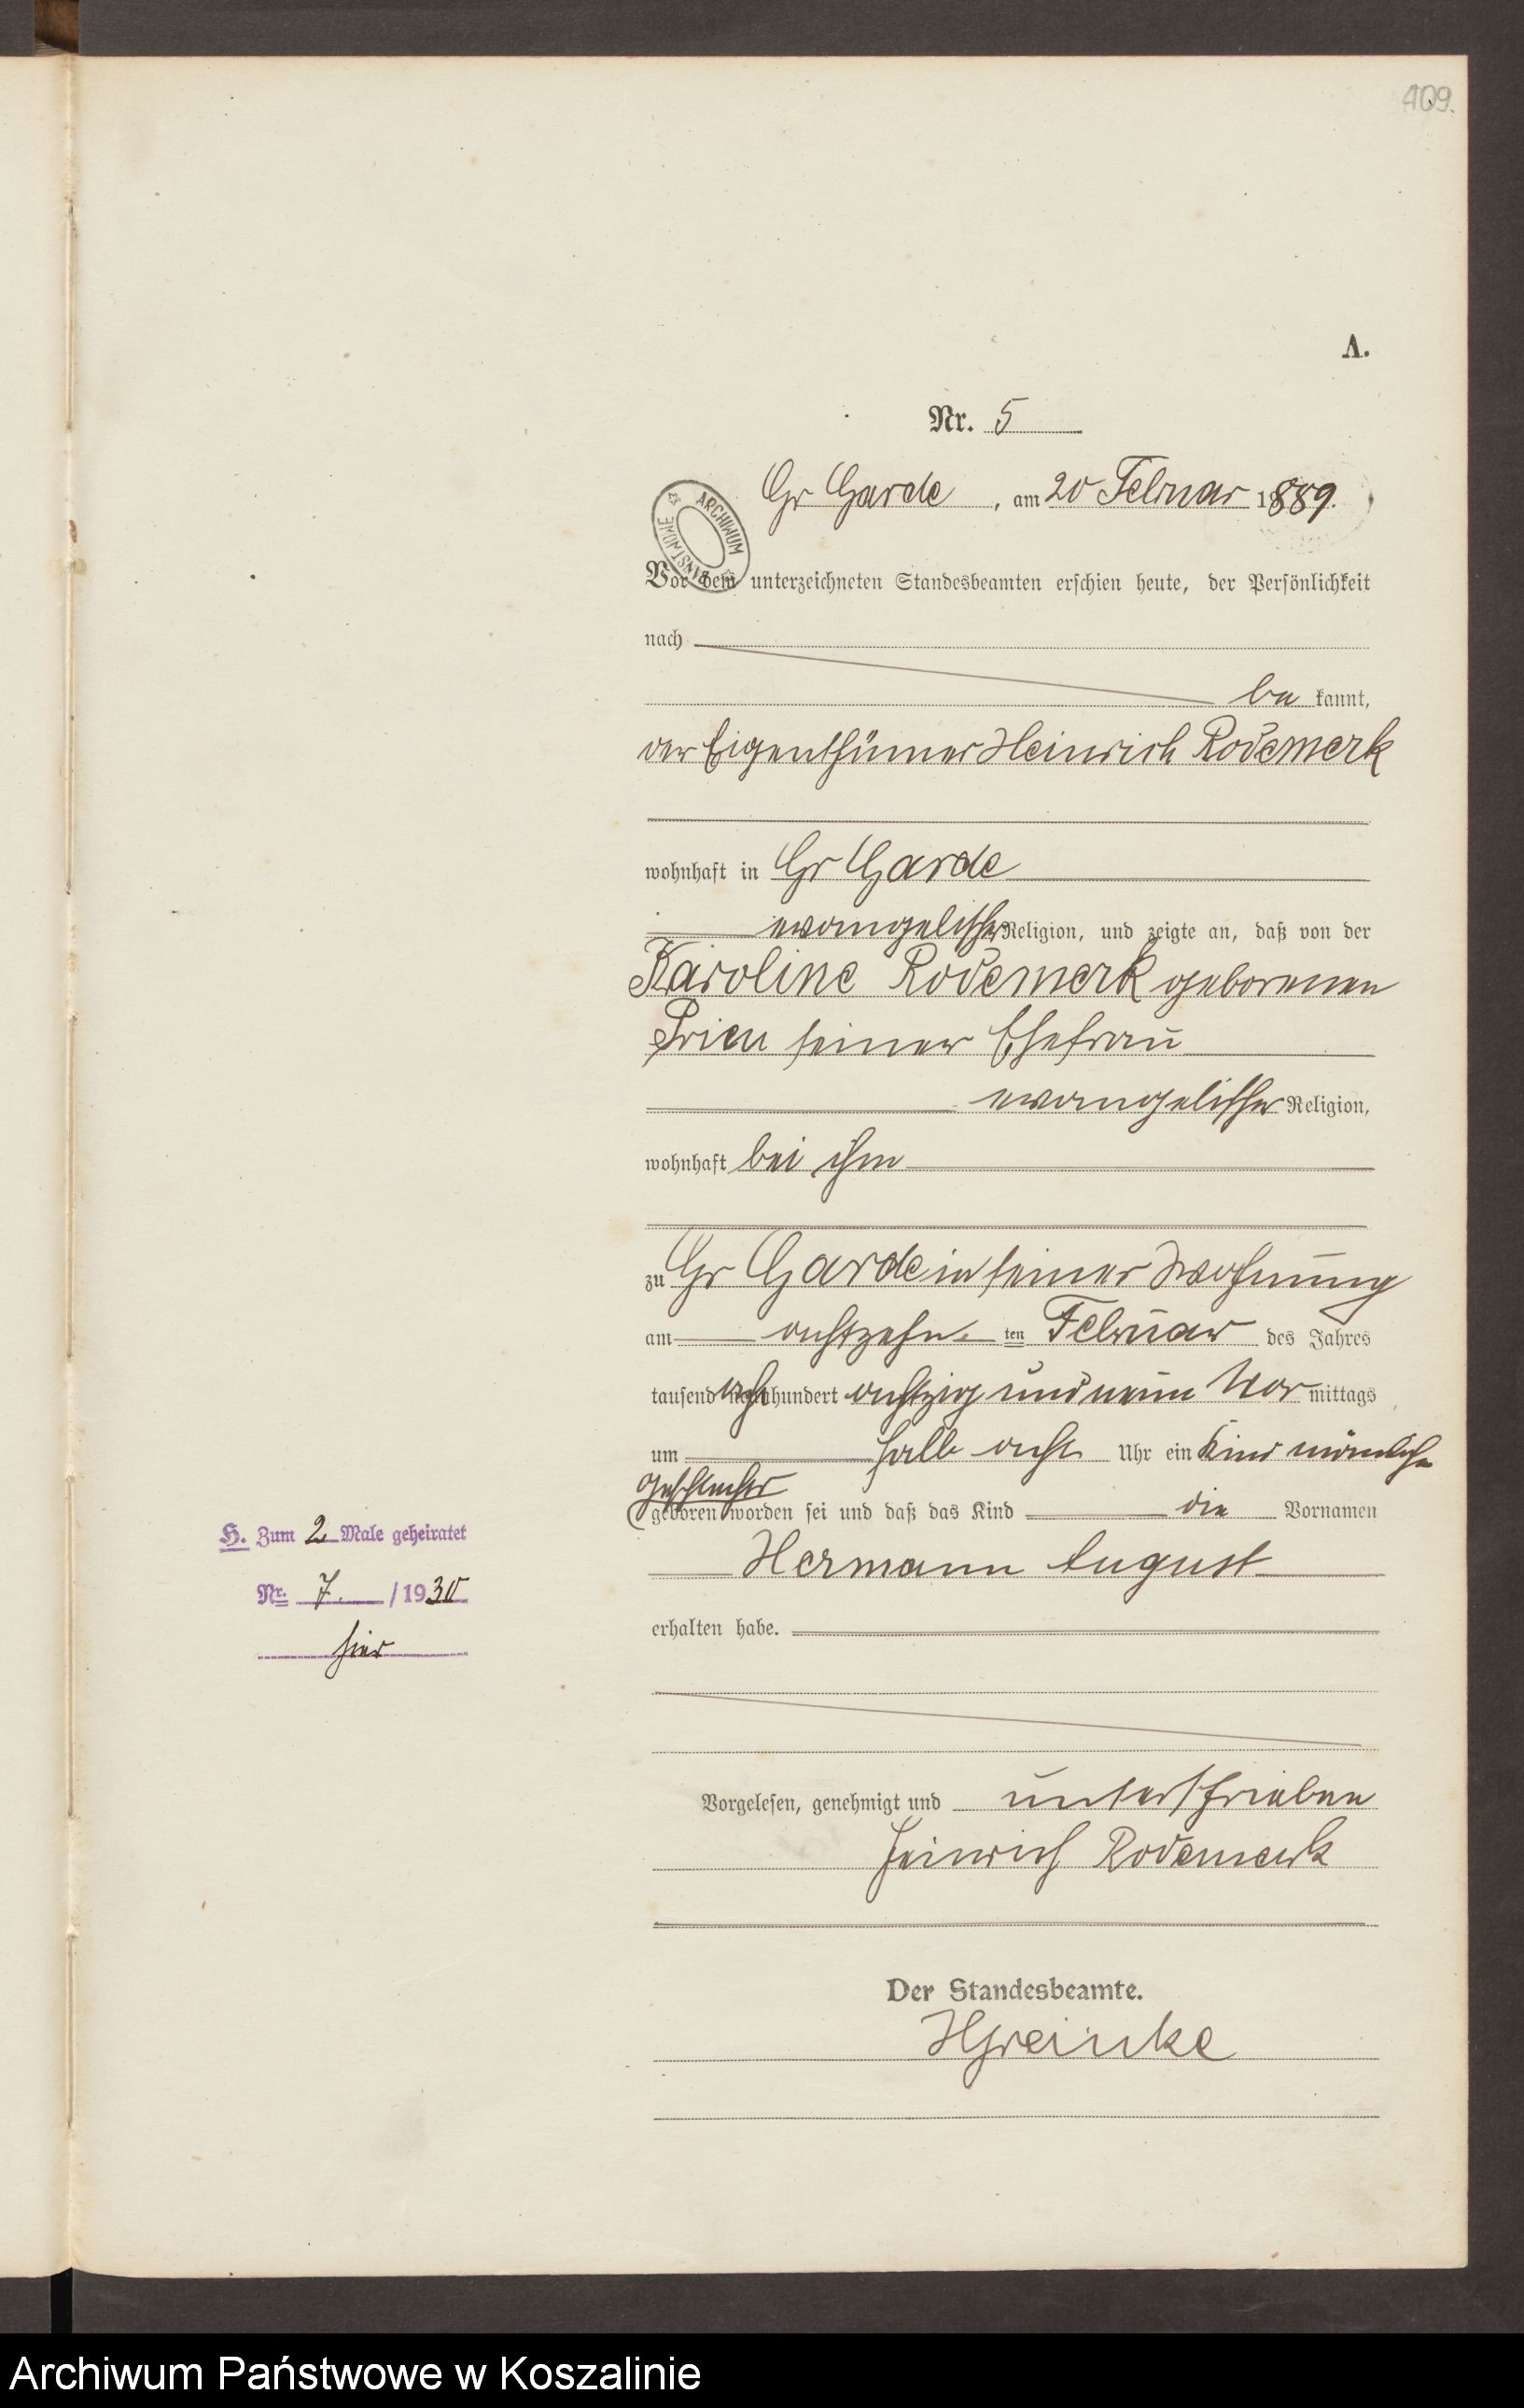 409.
A.
Nr. 5
Gr Garde, am 20 Februar 1889.
ARCHIWUM
Vor dem unterzeichneten Standesbeamten erschien heute, der Persönlichkeit
nach
be kannt,
der Eigenthümer Heinrich Rodemerk
wohnhaft in Gr Garde
evangelischer Religion, und zeigte an, daß von der
Karoline Rodemerk geborenen
Prieu seiner Ehefrau
evangelischer Religion,
wohnhaft bei ihm
zu Gr Garde in seiner Wohnung
am achtzehn ten Februar des Jahres
tausend acht hundert achtzig und neun Vor mittags
um halb acht Uhr ein Kind männlichen
Geschlechts
geboren worden sei und daß das Kind die Vornamen
H. Zum 2 Male geheiratet
Hermann August
Nr. 7. / 1930
erhalten habe.
hier
Vorgelesen, genehmigt und unterschrieben
Heinrich Rodemerk
Der Standesbeamte.
HGreinke
Archiwum Państwowe w Koszalinie